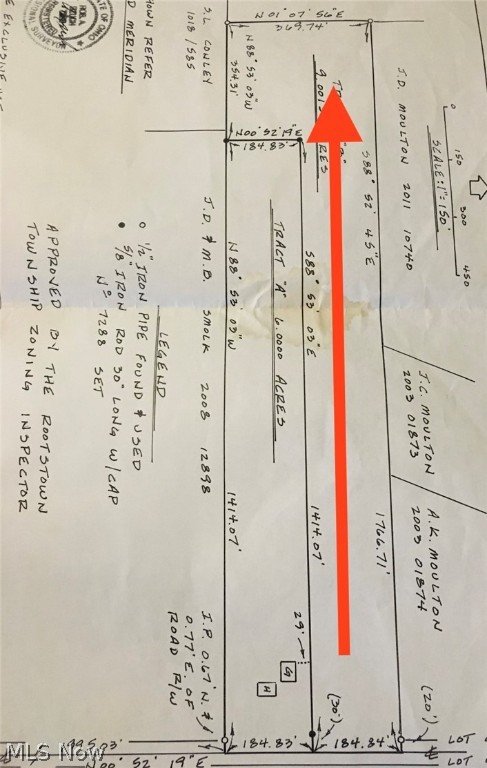 N 01° 07' 56" E
369.74'
S.L. CONLEY
1018 / 585
N 88° 53' 03" W
354.31'
HOWN REFER
D MERIDIAN
STATE OF OHIO
N00° 52' 19" E
184.83'
9.001
RES
S88° 52' 45" E
J.D. MOULTON 2011 10740
SCALE: 1" = 150'
0 150 300 450
J.D. & M.B. SMOLK 2008 12898
N 88° 53' 03" W
TRACT "A" 6.0000 ACRES
S88° 53' 03" E
LEGEND
○ 1/2" IRON PIPE FOUND & USED
● 5/8" IRON ROD 30" LONG W/CAP
Nº 7288 SET
APPROVED BY THE ROOTSTOWN
TOWNSHIP ZONING INSPECTOR
J.C. MOULTON
2003 01873
A.K. MOULTON
2003 01874
1414.07'
1414.07'
1766.71'
29'
G
H
I.P. 0.67' N. &
0.77' E. OF
ROAD R/W
(30')
(20')
184.83'
184.84'
LOT
N00° 52' 19" E
LOT
MLS Now